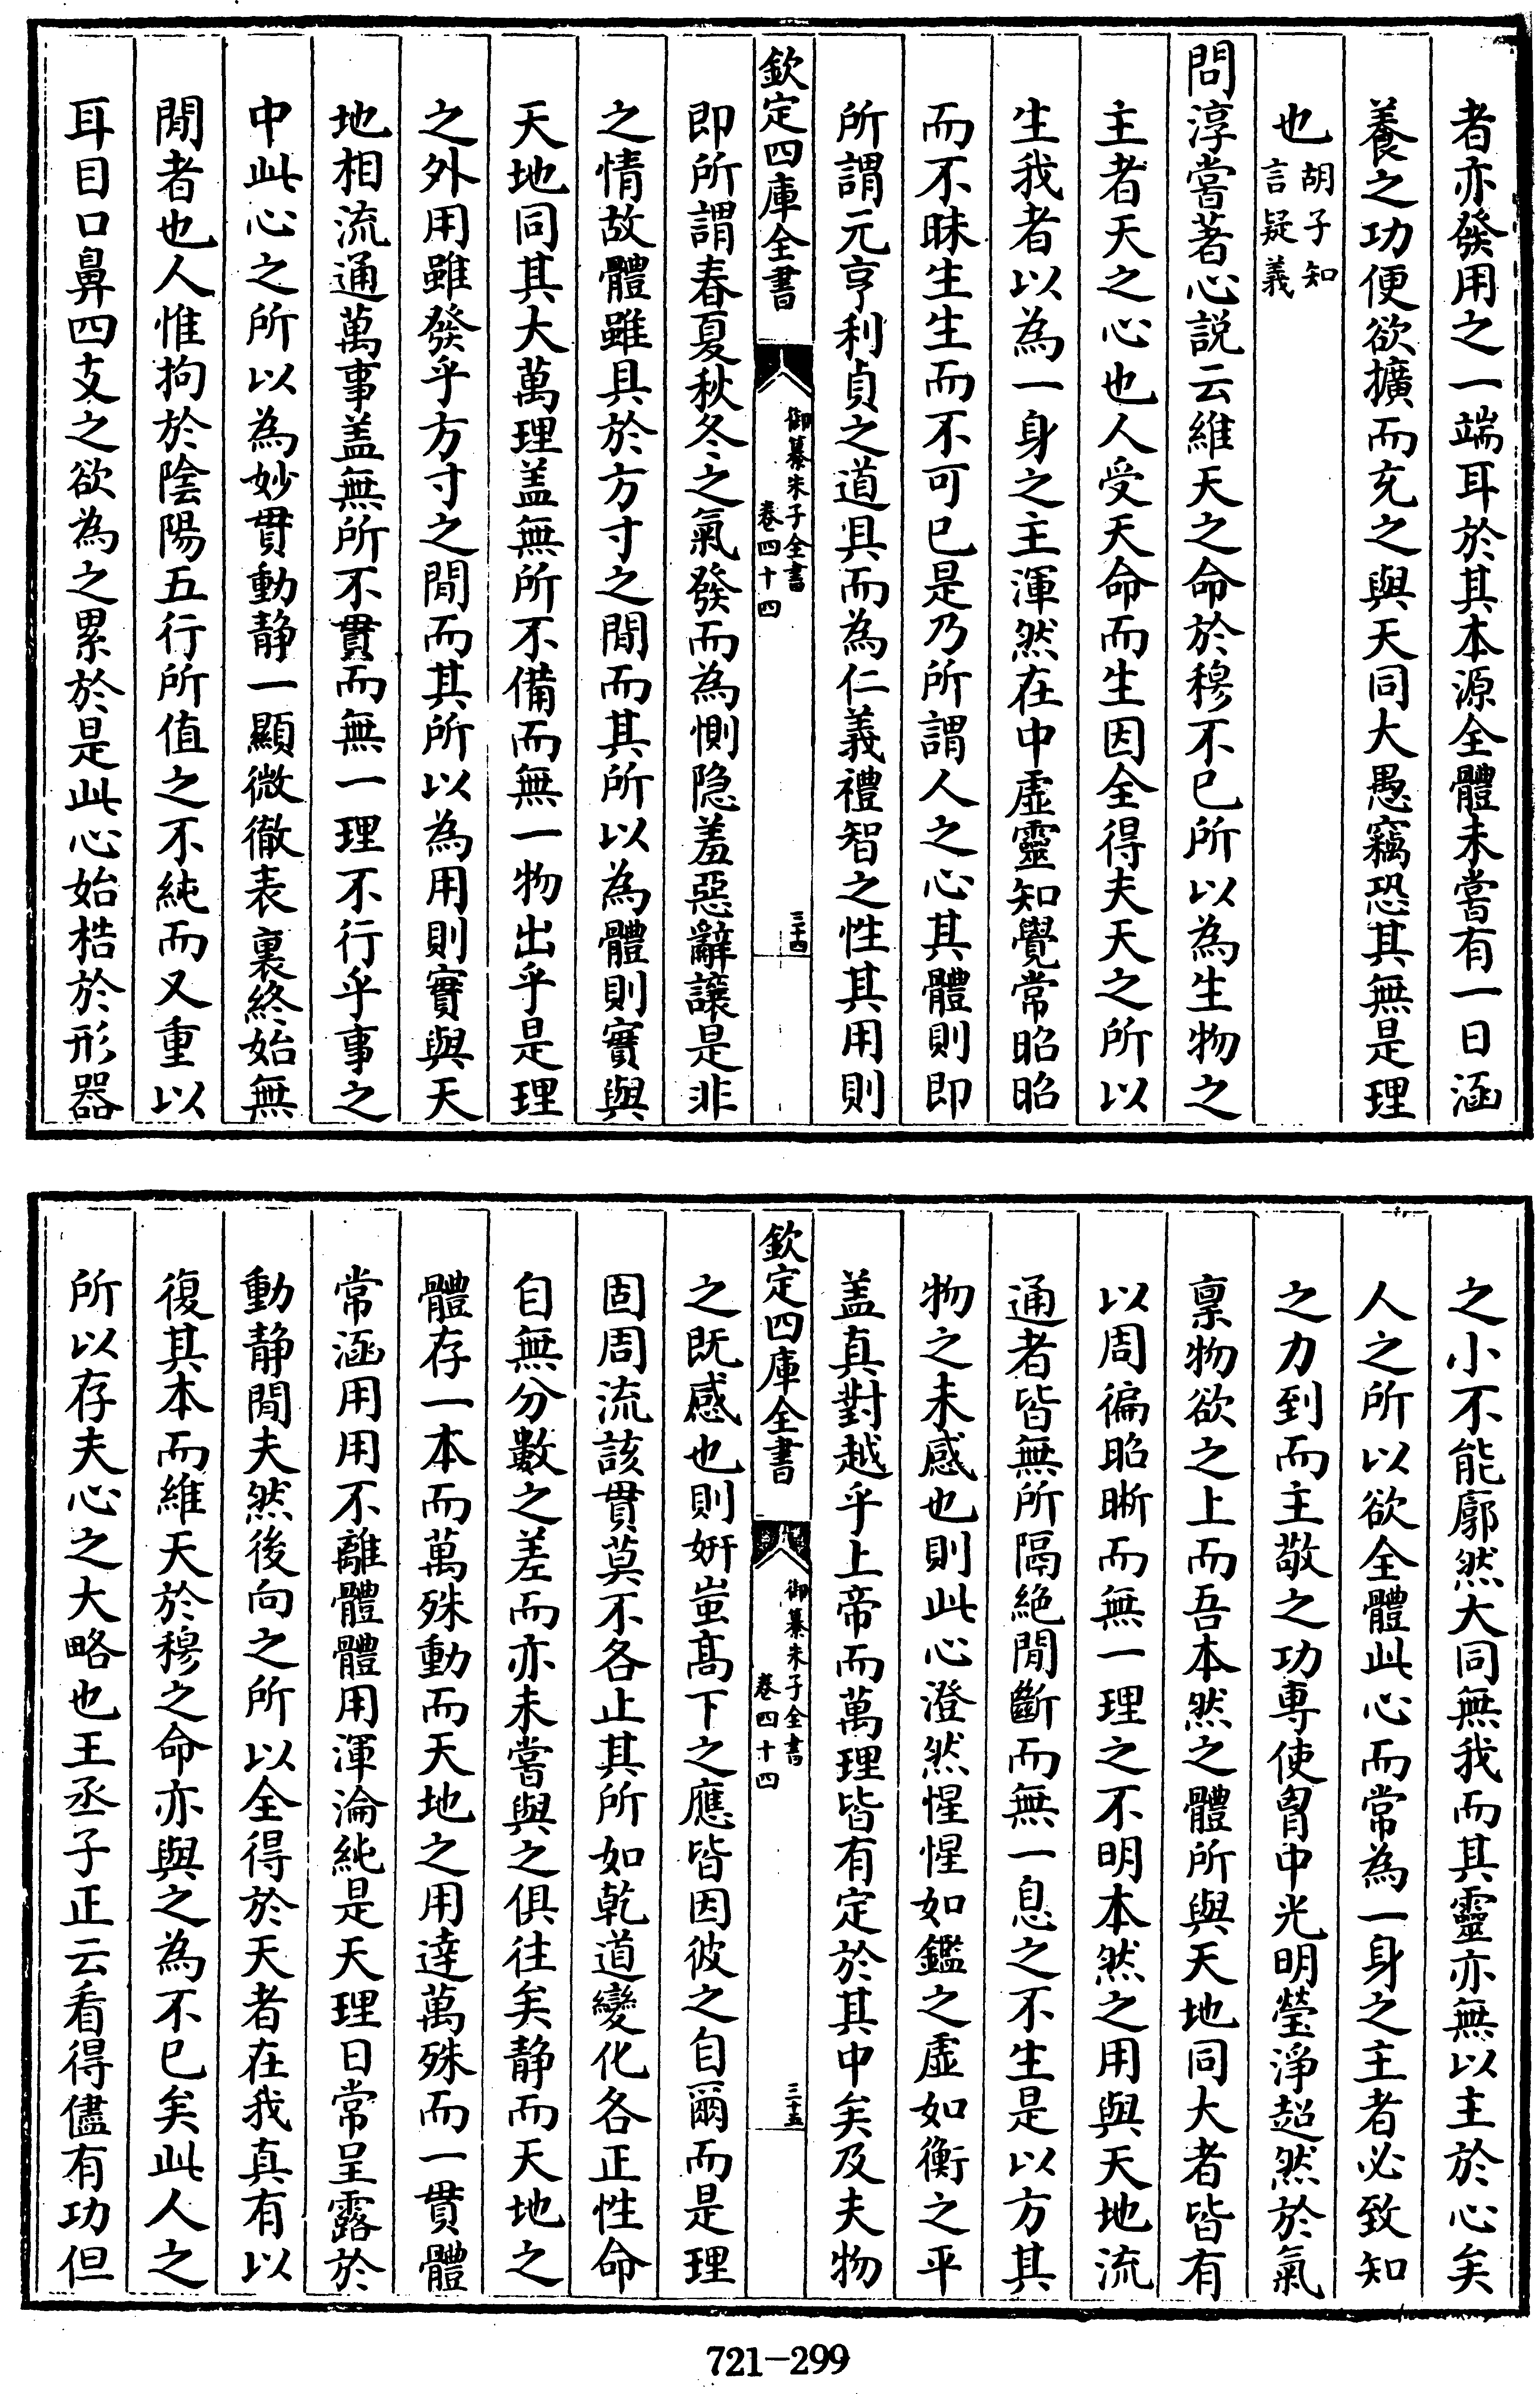 者亦發用之一端耳於其本源全體未嘗有一日涵
養之功便欲擴而充之與天同大愚竊恐其無是理
也胡子知
言疑義
問淳嘗著心説云維天之命於穆不已所以為生物之
主者天之心也人受天命而生因全得夫天之所以
生我者以為一身之主渾然在中虛靈知覺常昭昭
而不昧生生而不可已是乃所謂人之心其體則即
所謂元亨利貞之道具而為仁義禮智之性其用則
欽定四庫全書
御纂朱子全書
卷四十四
三十四
即所謂春夏秋冬之氣發而為惻隐羞惡辭讓是非
之情故體雖具於方寸之間而其所以為體則實與
天地同其大萬理盖無所不備而無一物出乎是理
之外用雖發乎方寸之間而其所以為用則實與天
地相流通萬事盖無所不貫而無一理不行乎事之
中此心之所以為妙貫動静一顯微徹表裏終始無
間者也人惟拘於陰陽五行所值之不純而又重以
耳目口鼻四支之欲為之累於是此心始梏於形器
之小不能廓然大同無我而其靈亦無以主於心矣
人之所以欲全體此心而常為一身之主者必致知
之力到而主敬之功専使胷中光明瑩淨超然於氣
稟物欲之上而吾本然之體所與天地同大者皆有
以周徧昭晰而無一理之不明本然之用與天地流
通者皆無所隔絶間斷而無一息之不生是以方其
物之未感也則此心澄然惺惺如鑑之虛如衡之平
盖真對越乎上帝而萬理皆有定於其中矣及夫物
欽定四庫全書
御纂朱子全書
卷四十四
三十五
之既感也則妍蚩髙下之應皆因彼之自爾而是理
固周流該貫莫不各止其所如乾道變化各正性命
自無分數之差而亦未嘗與之俱往矣静而天地之
體存一本而萬殊動而天地之用逹萬殊而一貫體
常涵用用不離體體用渾淪純是天理日常呈露於
動静間夫然後向之所以全得於天者在我真有以
復其本而維天於穆之命亦與之為不已矣此人之
所以存夫心之大略也王丞子正云看得儘有功但
721-299